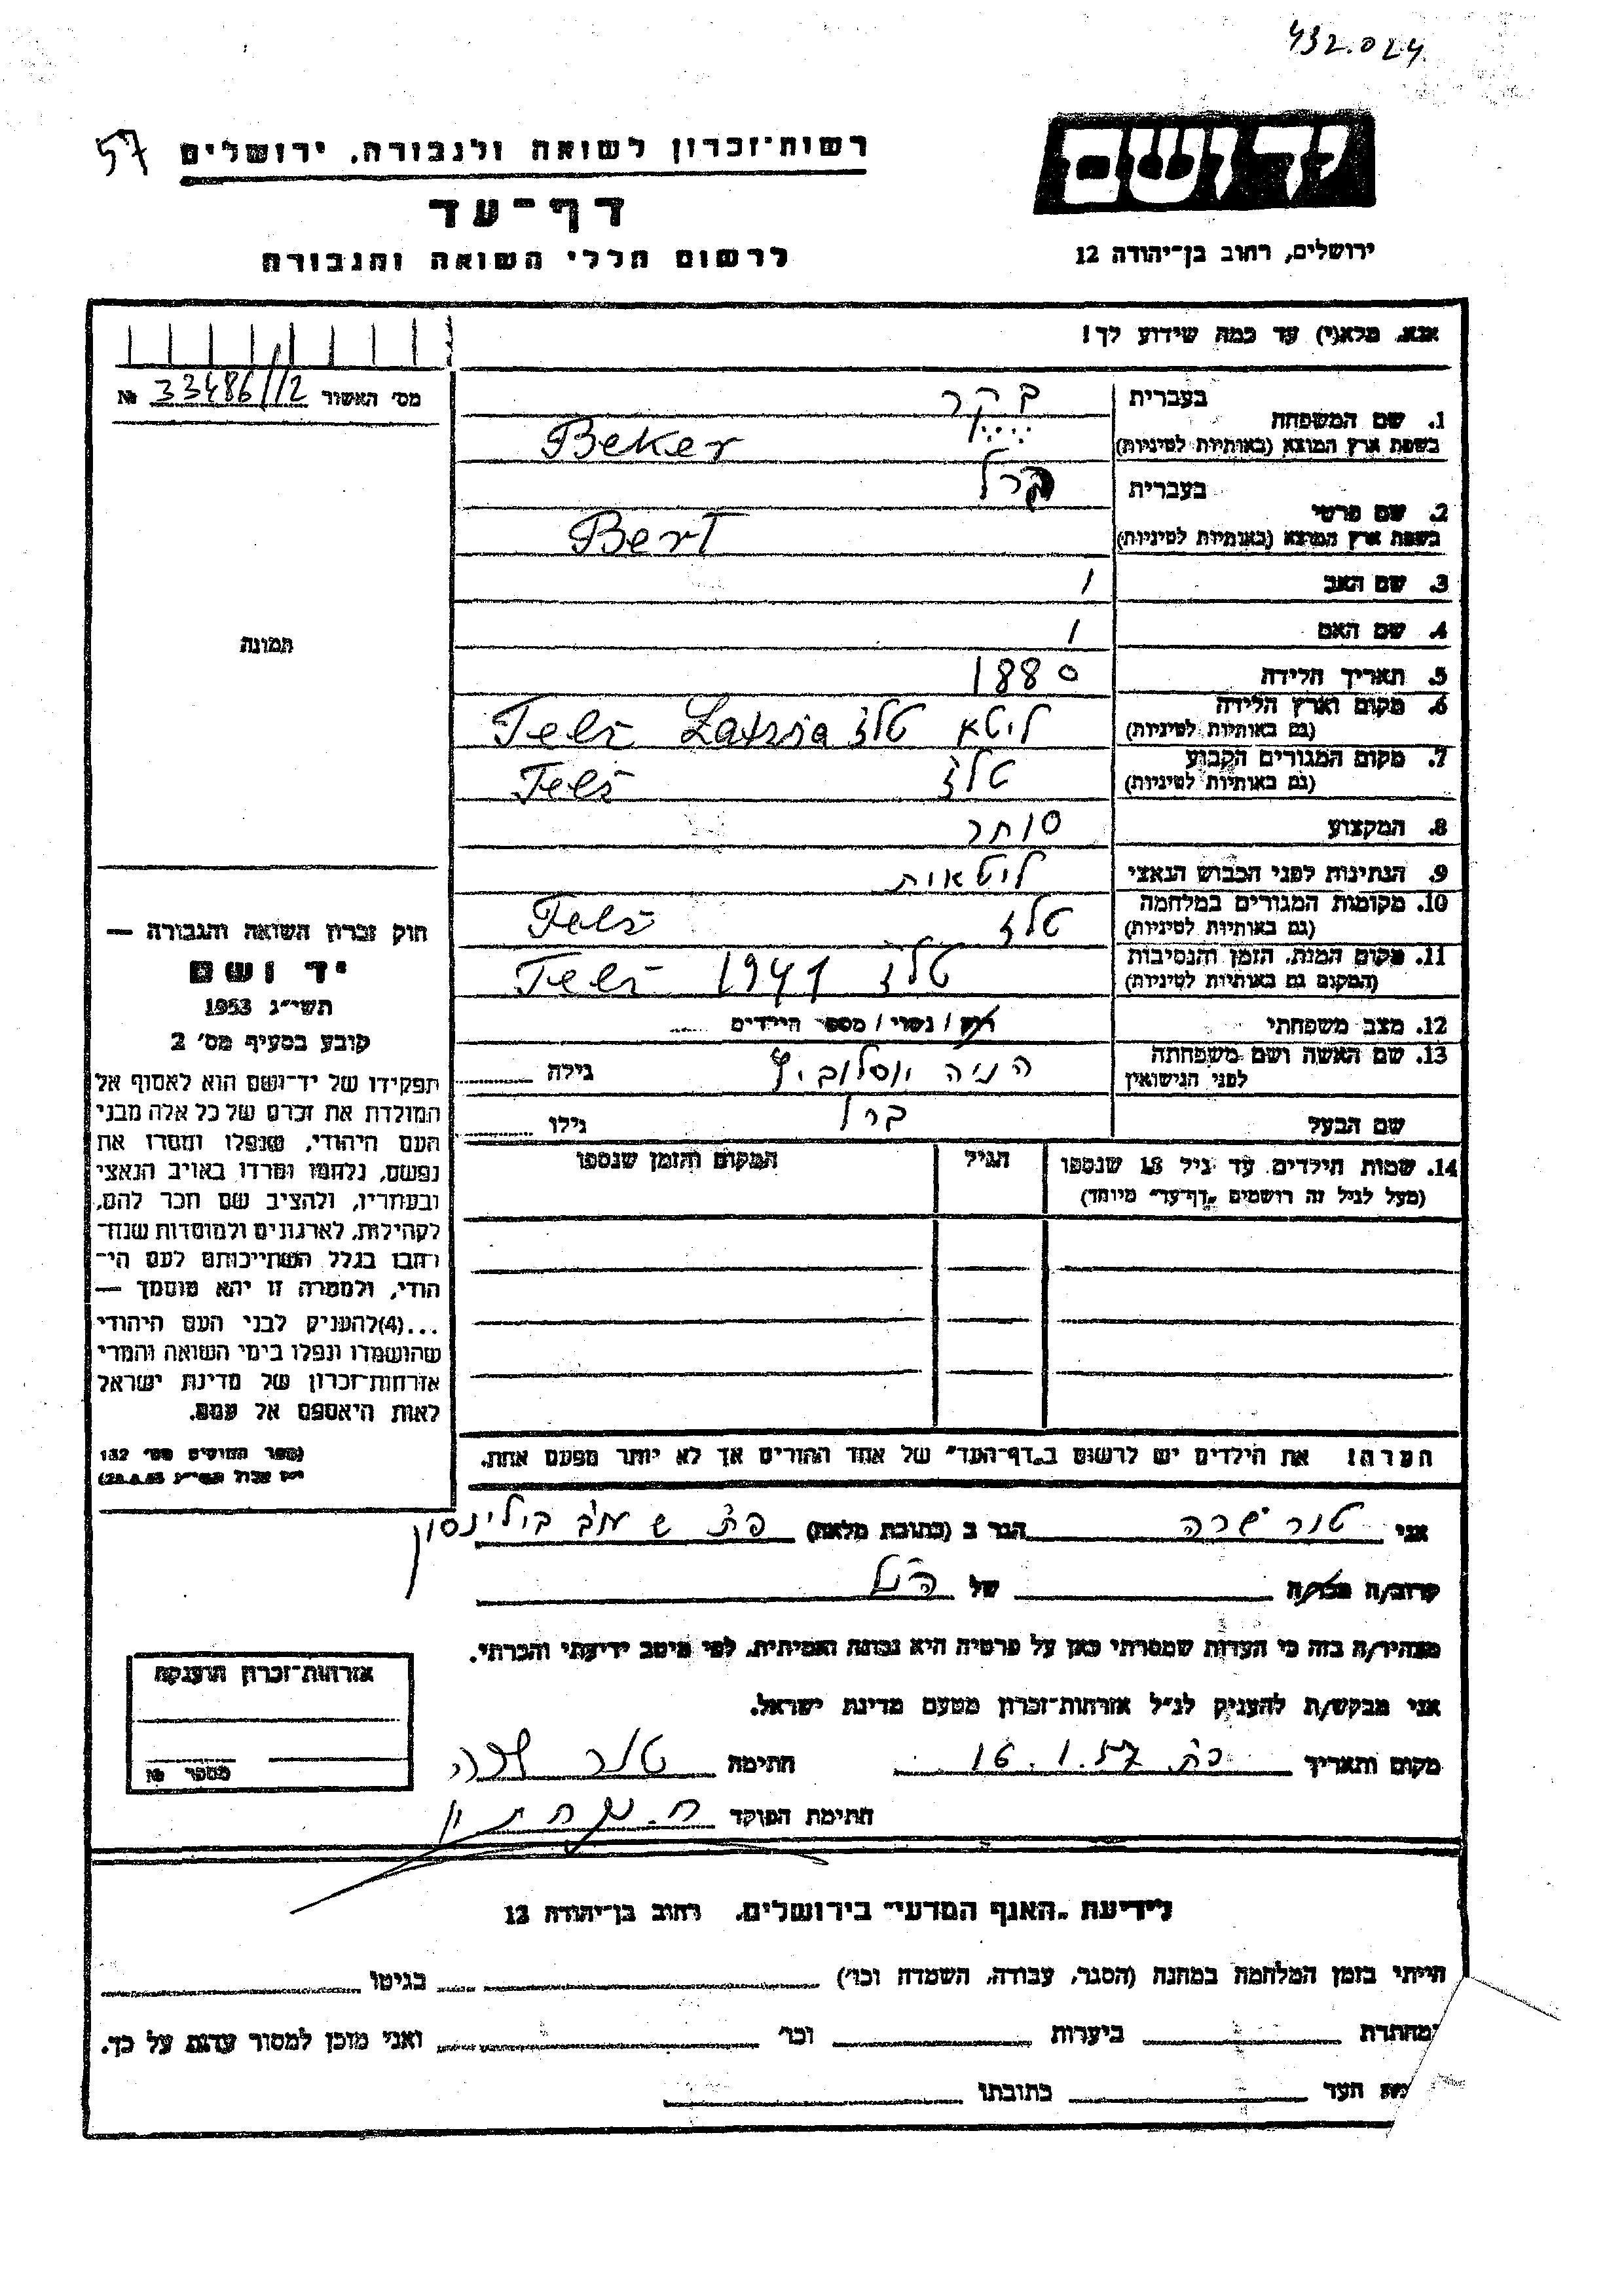 432.024
57
רשות־זכרון לשואה ולגבורה, ירושלים
יד ושם
דף־עד
לרשום חללי השואה והגבורה
ירושלים, רחוב בן־יהודה 12
אנא, מלא(י) עד כמה שידוע לך!
מס׳ האשור № 33486/12
1. שם המשפחה בעברית בקר
בשפת ארץ המוצא (באותיות לטיניות) Beker
2. שם פרטי בעברית ברל
בשפת ארץ המוצא (באותיות לטיניות) Berl
3. שם האב /
4. שם האם /
תמונה
5. תאריך הלידה 1880
6. מקום וארץ הלידה (גם באותיות לטיניות) ליטא טלז Telz
7. מקום המגורים הקבוע (גם באותיות לטיניות) טלז Telz
8. המקצוע סוחר
9. הנתינות לפני הכבוש הנאצי ליטאית
10. מקומות המגורים במלחמה (גם באותיות לטיניות) טלז Telz
11. מקום המות, הזמן והנסיבות (המקום גם באותיות לטיניות) טלז 1941 Telz
12. מצב משפחתי רוק / נשוי / מספר הילדים
13. שם האשה ושם משפחתה לפני הנישואין הניה יוסלוביץ גילה
שם הבעל ברל גילו
14. שמות הילדים עד גיל 18 שנספו הגיל המקום והזמן שנספו
(מעל לגיל זה רושמים „דף־עד״ מיוחד)
הערה! את הילדים יש לרשום ב„דף־העד״ של אחד ההורים אך לא יותר מפעם אחת.
חוק זכרון השואה והגבורה —
יד ושם
תשי״ג 1953
קובע בסעיף מס׳ 2
תפקידו של יד־ושם הוא לאסוף אל
המולדת את זכרם של כל אלה מבני
העם היהודי, שנפלו ומסרו את
נפשם, נלחמו ומרדו באויב הנאצי
ובעוזריו, ולהציב שם וזכר להם,
לקהילות, לארגונים ולמוסדות שנח־
רבו בגלל השתייכותם לעם הי־
הודי, ולמטרה זו יהא מוסמך —
...(4)להעניק לבני העם היהודי
שהושמדו ונפלו בימי השואה והמרי
אזרחות־זכרון של מדינת ישראל
לאות היאספם אל עמם.
(ספר החוקים מס׳ 132
אני טור שרה הגר ב (כתובת מלאה) פת ש בילינסון
קרוב/ה מכר/ה של הנ״ל
מצהיר/ה בזה כי העדות שמסרתי כאן על פרטיה היא נכונה ואמיתית, לפי מיטב ידיעתי והכרתי.
אני מבקש/ת להעניק לנ״ל אזרחות־זכרון מטעם מדינת ישראל.
מקום ותאריך פת 16.1.57 חתימה טור שרה
חתימת הפוקד
אזרחות־זכרון הוענקה
מספר №
לידיעת „האגף המדעי״ בירושלים, רחוב בן־יהודה 12
הייתי בזמן המלחמה במחנה (הסגר, עבודה, השמדה וכו׳) בגיטו
במחתרת ביערות וכו׳ ואני מוכן למסור עדות על כך.
העד כתובתו